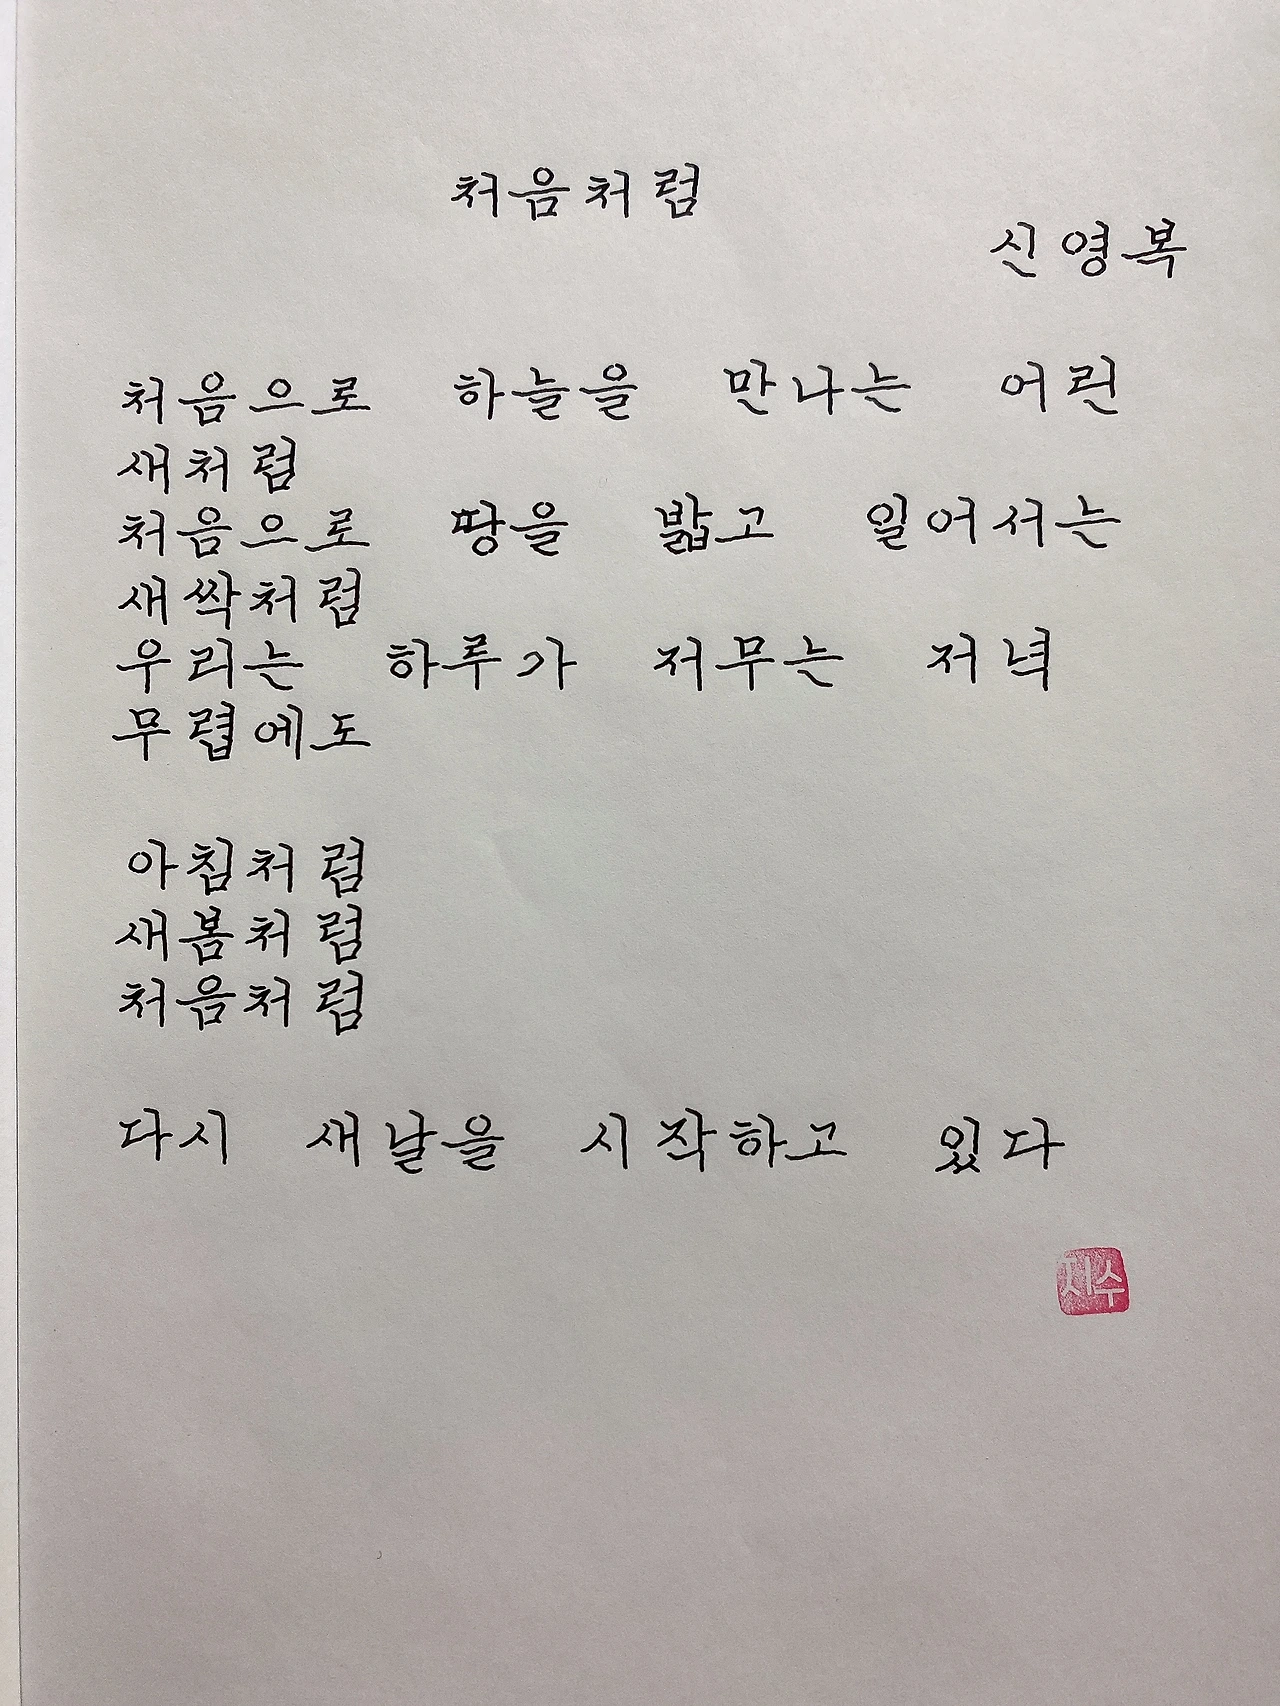 처음처럼
신영복
처음으로 하늘을 만나는 어린
새처럼
처음으로 땅을 밟고 일어서는
새싹처럼
우리는 하루가 저무는 저녁
무렵에도
아침처럼
새봄처럼
처음처럼
다시 새날을 시작하고 있다
지수